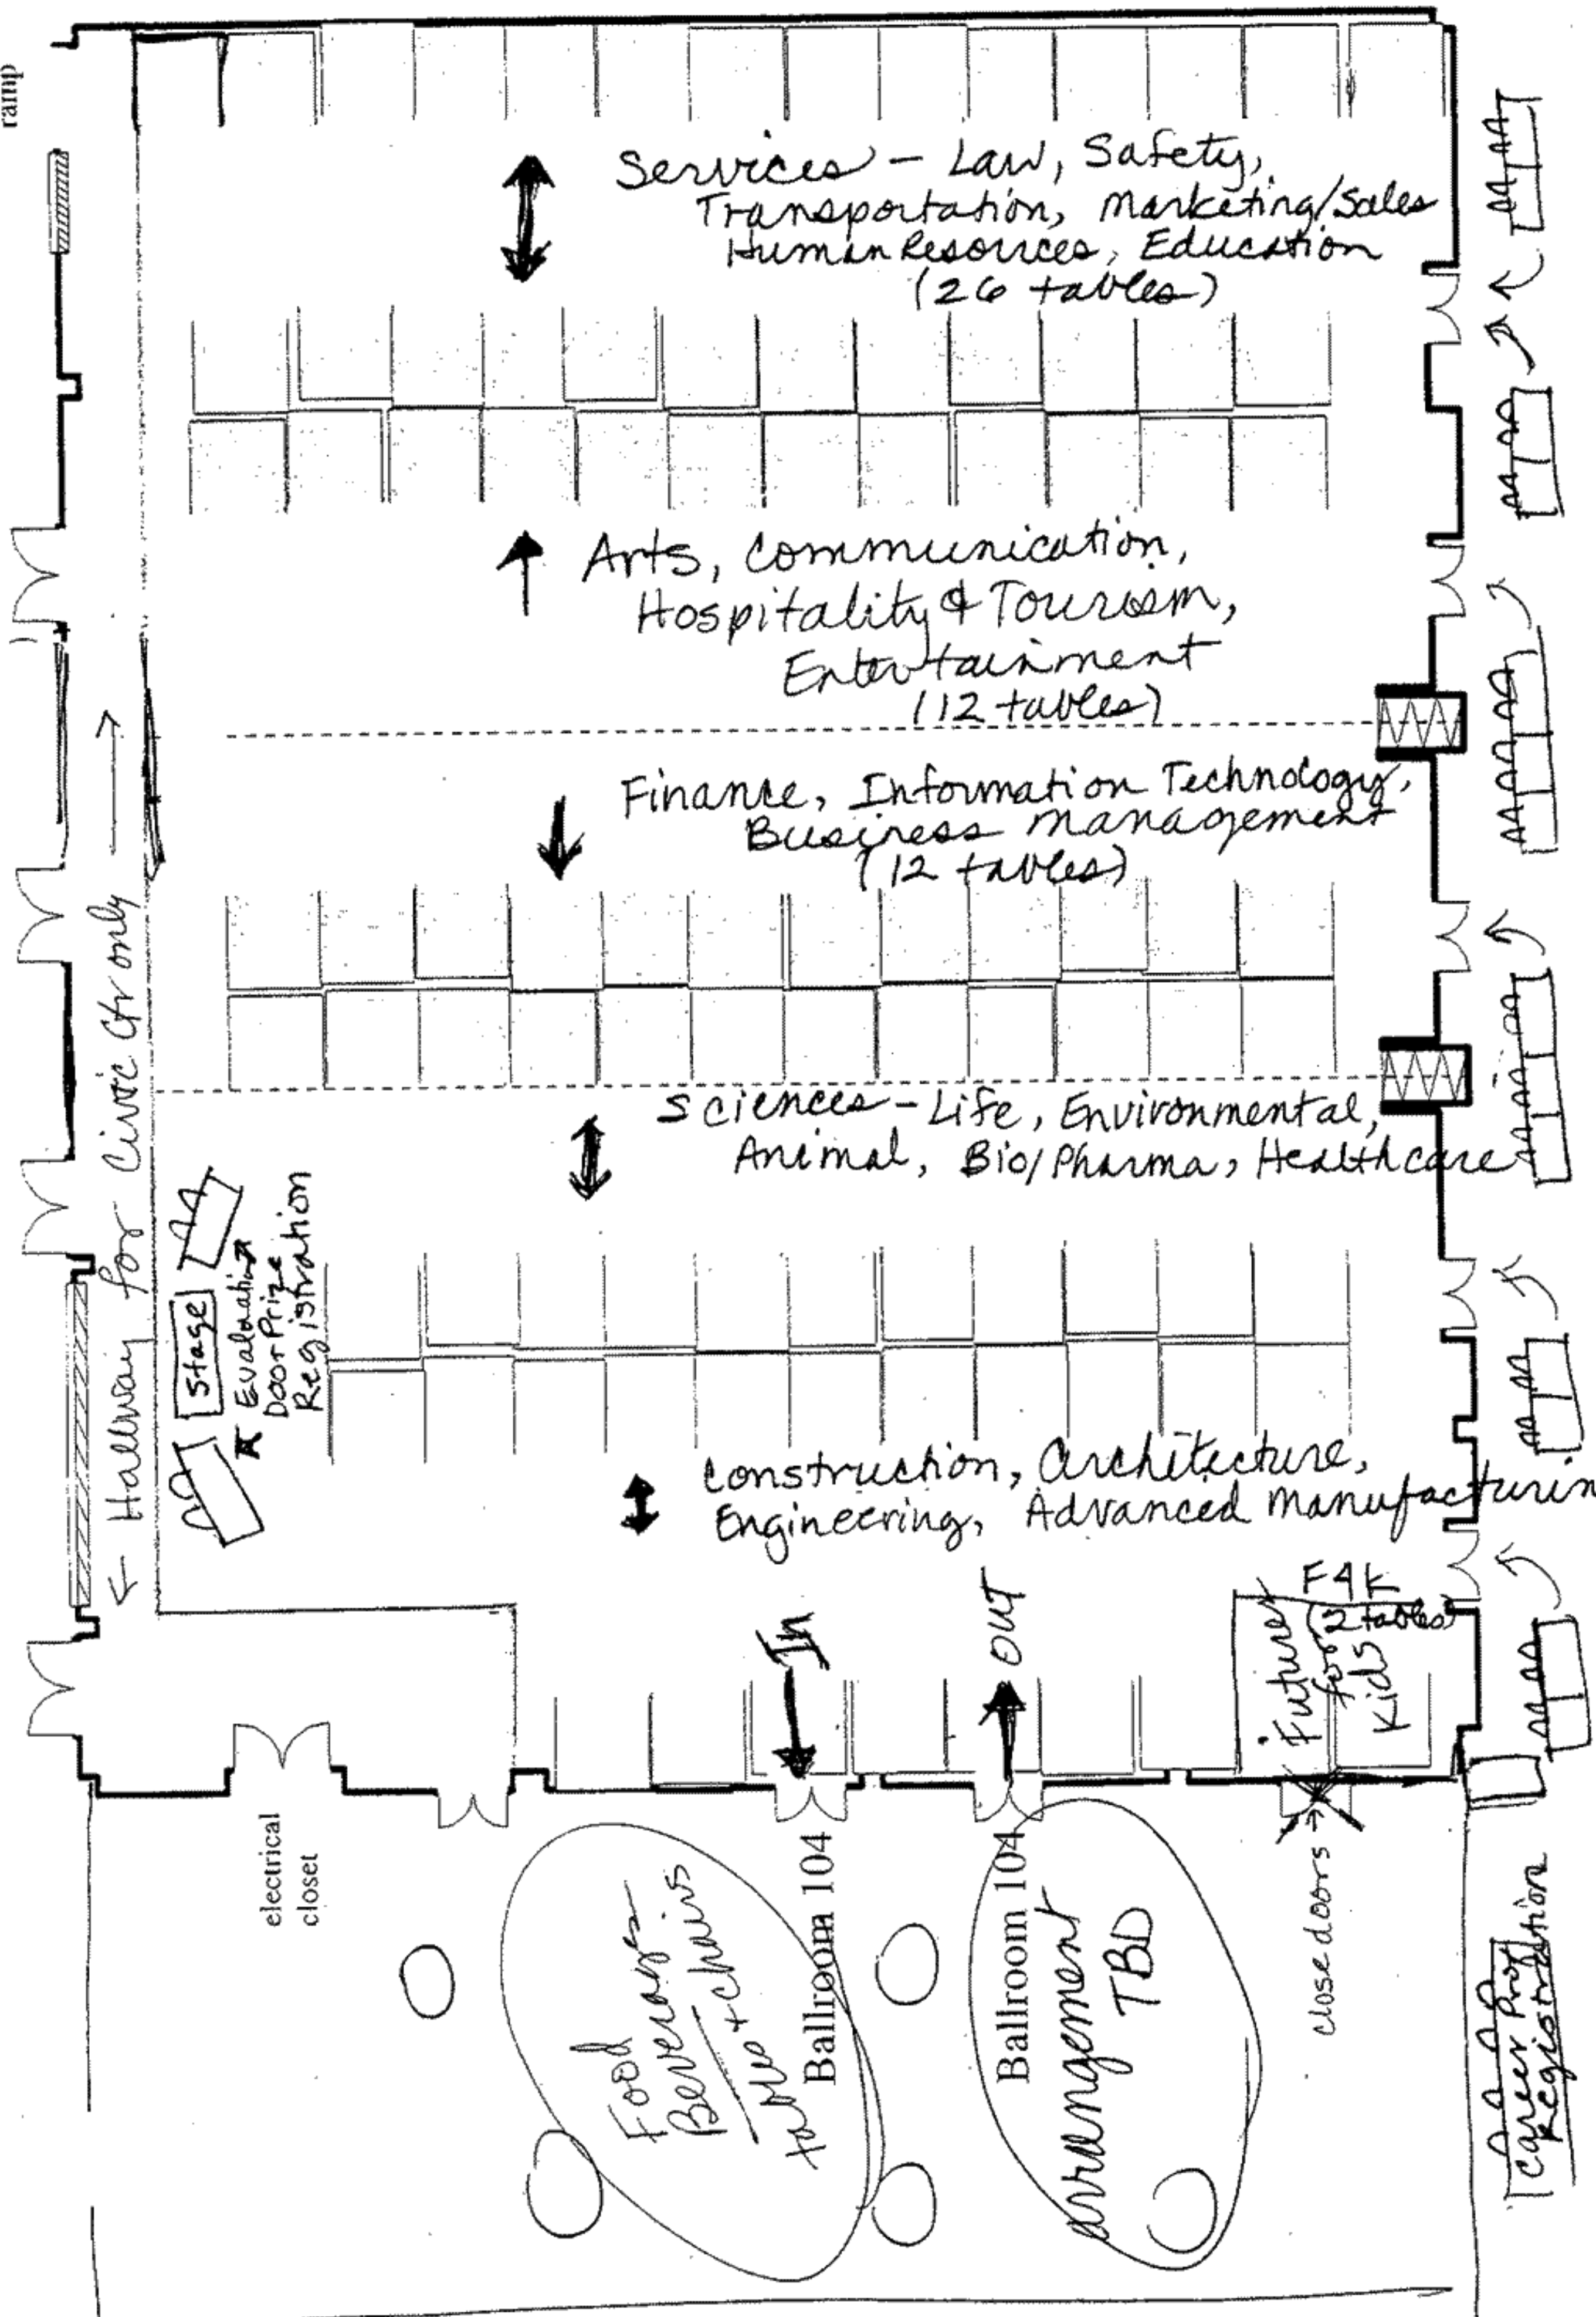 ramp
Services - Law, Safety,
Transportation, Marketing/Sales
Human Resources, Education
(26 tables)
Arts, Communication,
Hospitality & Tourism,
Entertainment
(12 tables)
Finance, Information Technology,
Business Management
(12 tables)
Sciences - Life, Environmental,
Animal, Bio/Pharma, Healthcare
← Hallway for Civic Ctr only →
Stage
Evaluation
Door Prize
Registration
Construction, Architecture,
Engineering, Advanced Manufacturin
In
OUT
F4K
(2 tables)
Futures
for
Kids
electrical
closet
Food
Beverages
tables + chairs
Ballroom 104
Ballroom 104
arrangement
TBD
close doors →
Career Prof
Registration